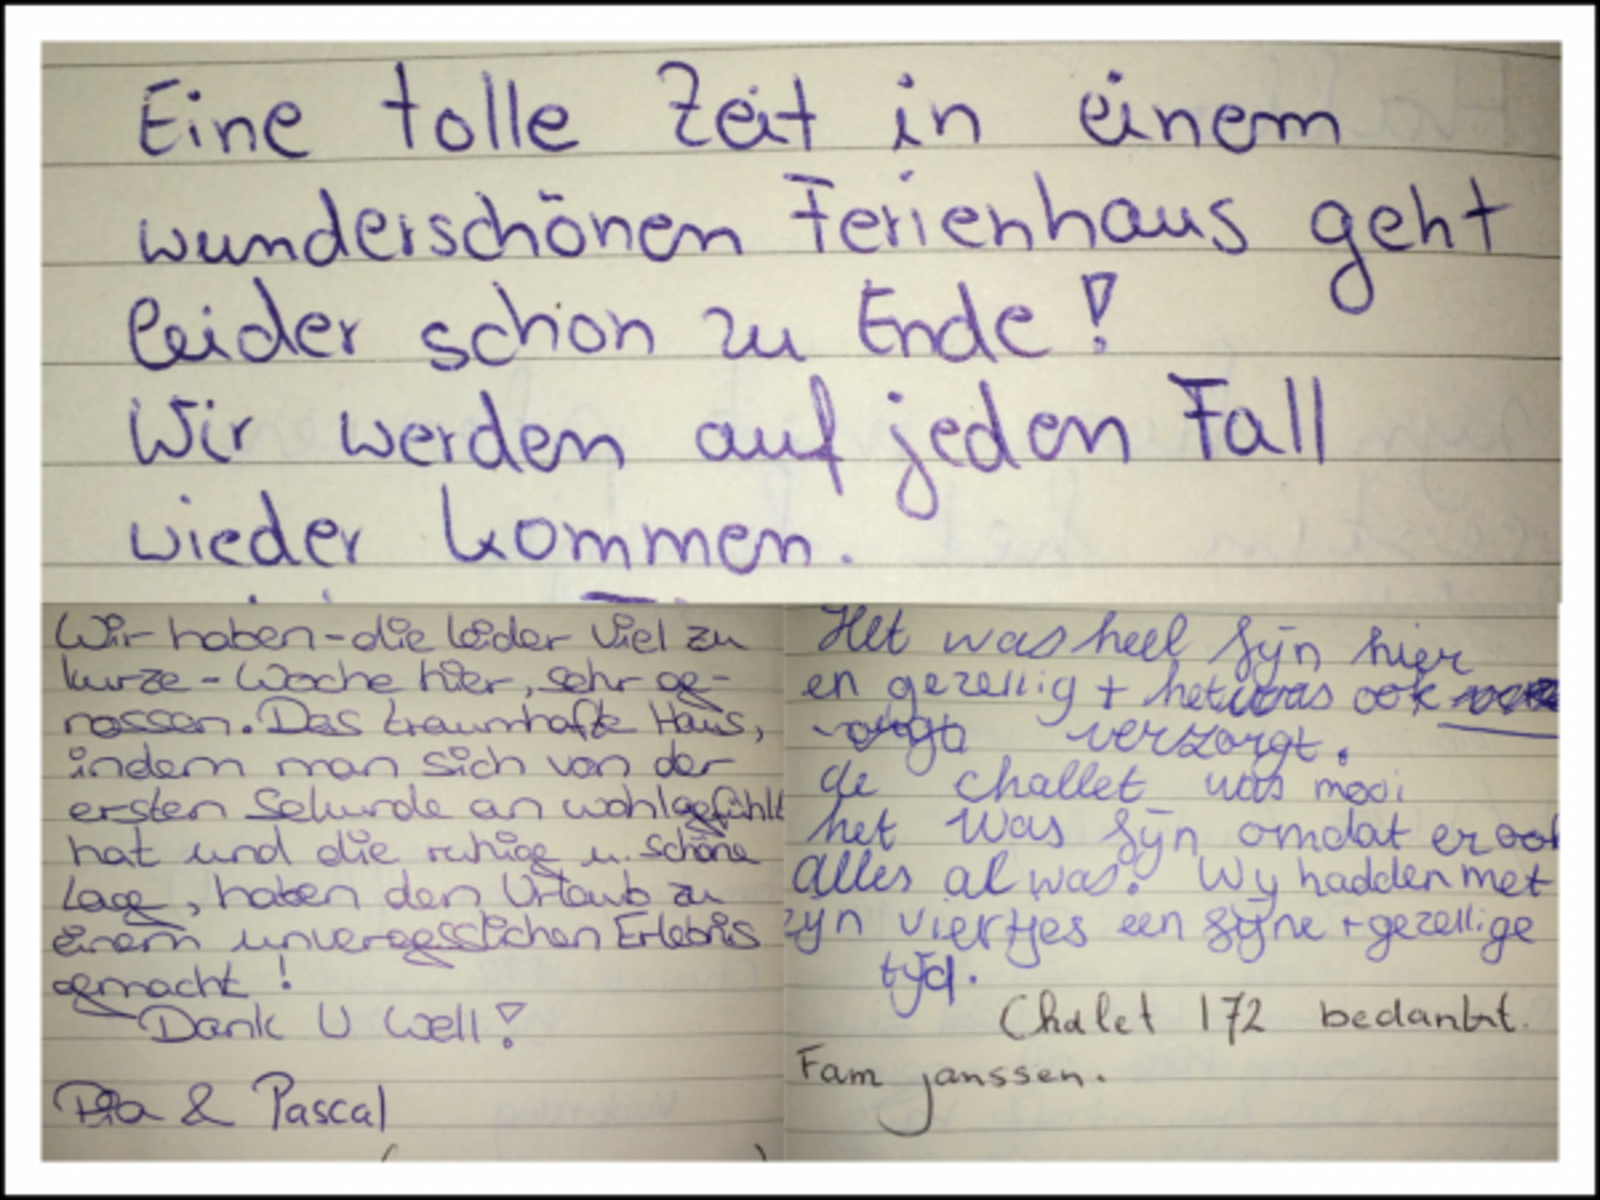 Eine tolle Zeit in einem
wunderschönen Ferienhaus geht
leider schon zu Ende!
Wir werden auf jeden Fall
wieder kommen.
Wir haben-die leider viel zu
kurze-Woche hier, sehr ge-
nossen. Das traumhafte Haus,
indem man sich von der
ersten Sekunde an wohlgefühlt
hat und die ruhige u. schöne
Lage, haben den Urlaub zu
einem unvergesslichen Erlebnis
gemacht!
Dank U Well!
Pia & Pascal
Het was heel fijn hier
en gezellig + het was ook
verzorgt.
de challet was mooi
het was fijn omdat er ook
alles al was. Wy hadden met
zyn viertjes een fijne + gezellige
tyd.
Chalet 172 bedankt.
Fam janssen.